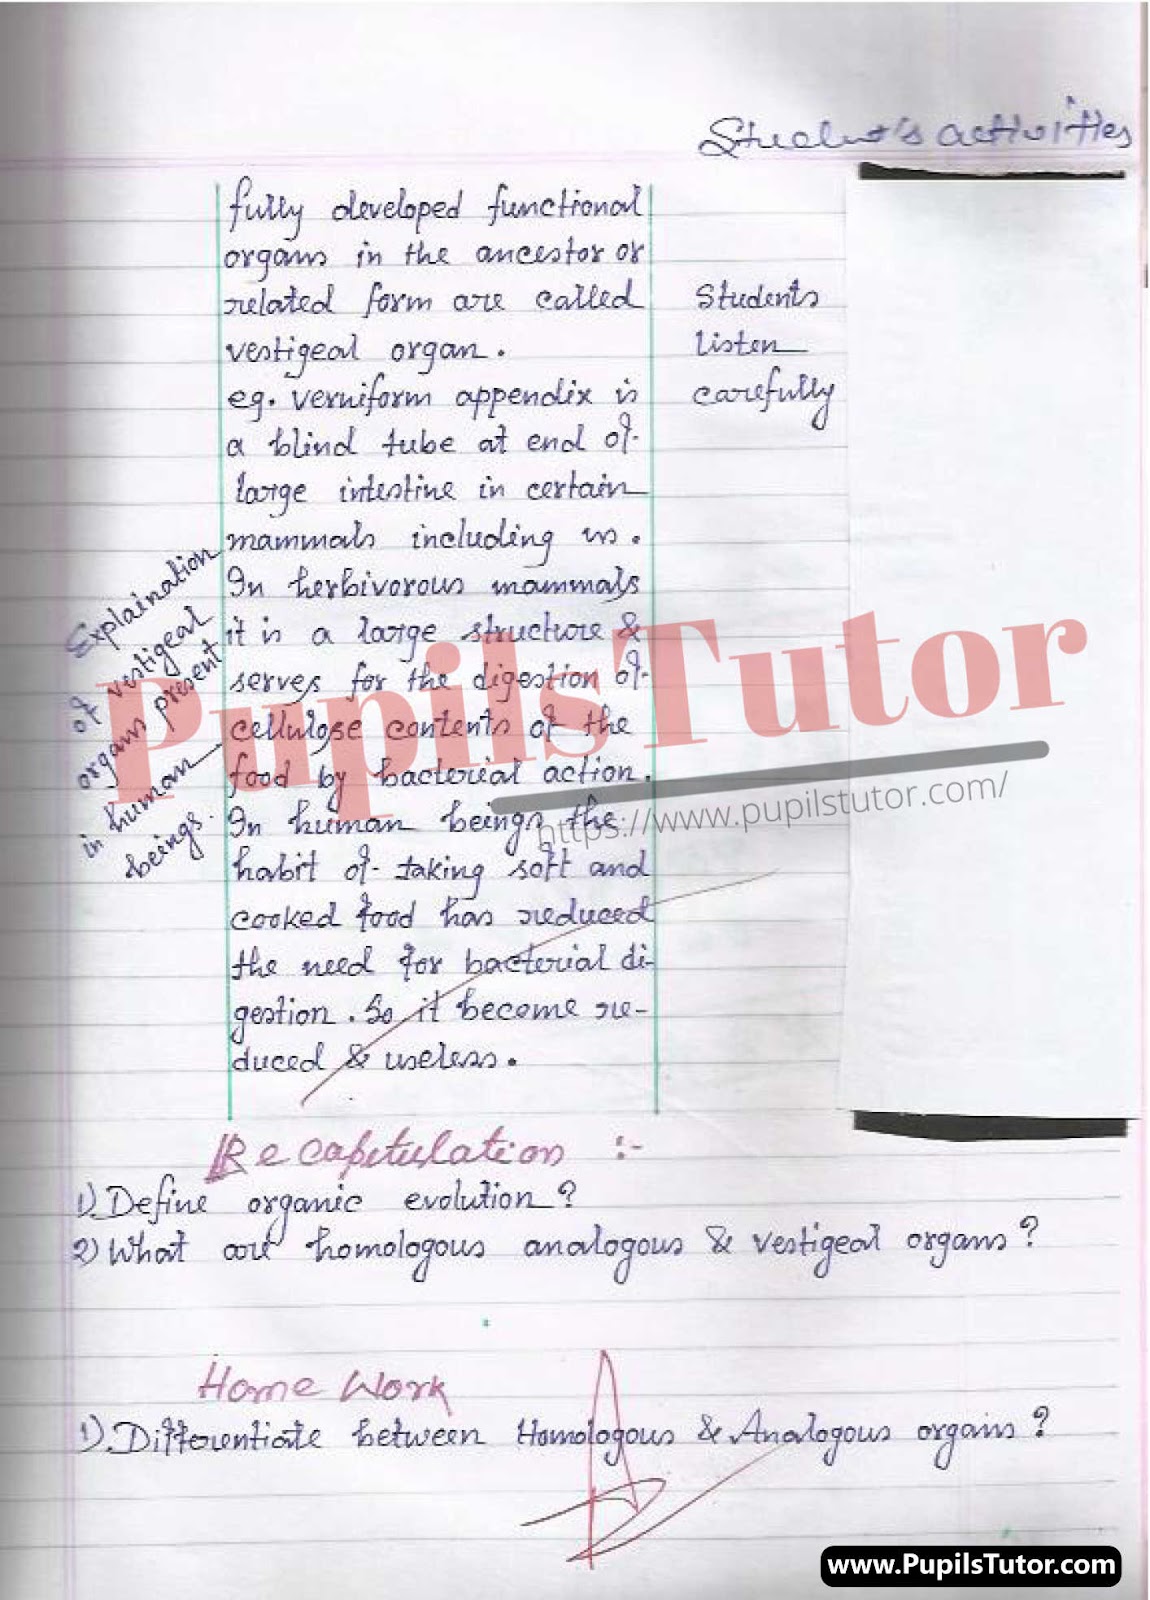 Student's activities
fully developed functional
organs in the ancestor or
related form are called
vestigeal organ.
eg. vermiform appendix is
a blind tube at end of
large intestine in certain
mammals including us.
In herbivorous mammals
it is a large structure &
serves for the digestion of
cellulose contents of the
food by bacterial action.
In human beings the
habit of taking soft and
cooked food has reduced
the need for bacterial di-
gestion. So it become re-
duced & useless.
Students
listen
carefully
Explaination
of vestigeal
organs present
in human
beings.
PupilsTutor
https://www.pupilstutor.com/
Recapitulation :-
1) Define organic evolution?
2) What are homologous analogous & vestigeal organs?
Home Work
1) Differentiate between Homologous & Analogous organs?
www.PupilsTutor.com